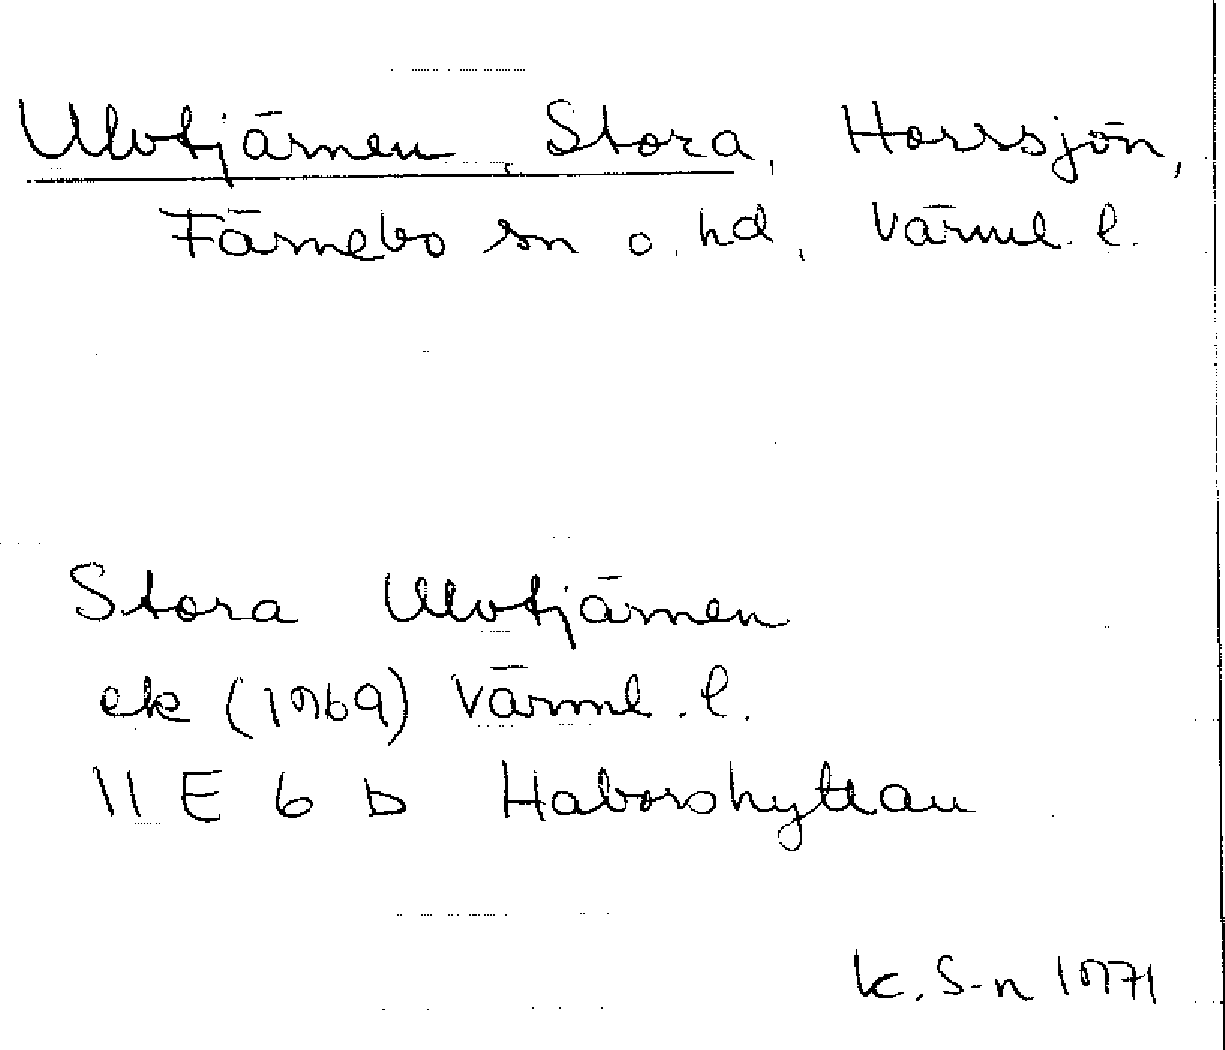 Ulvtjärnen, Stora, Horrsjön,
Färnebo sn o. hd, Värml. l.
Stora Ulvtjärnen
ek (1969) Värml. l.
11 E 6 b Haborshyttan
K. S-n 1971